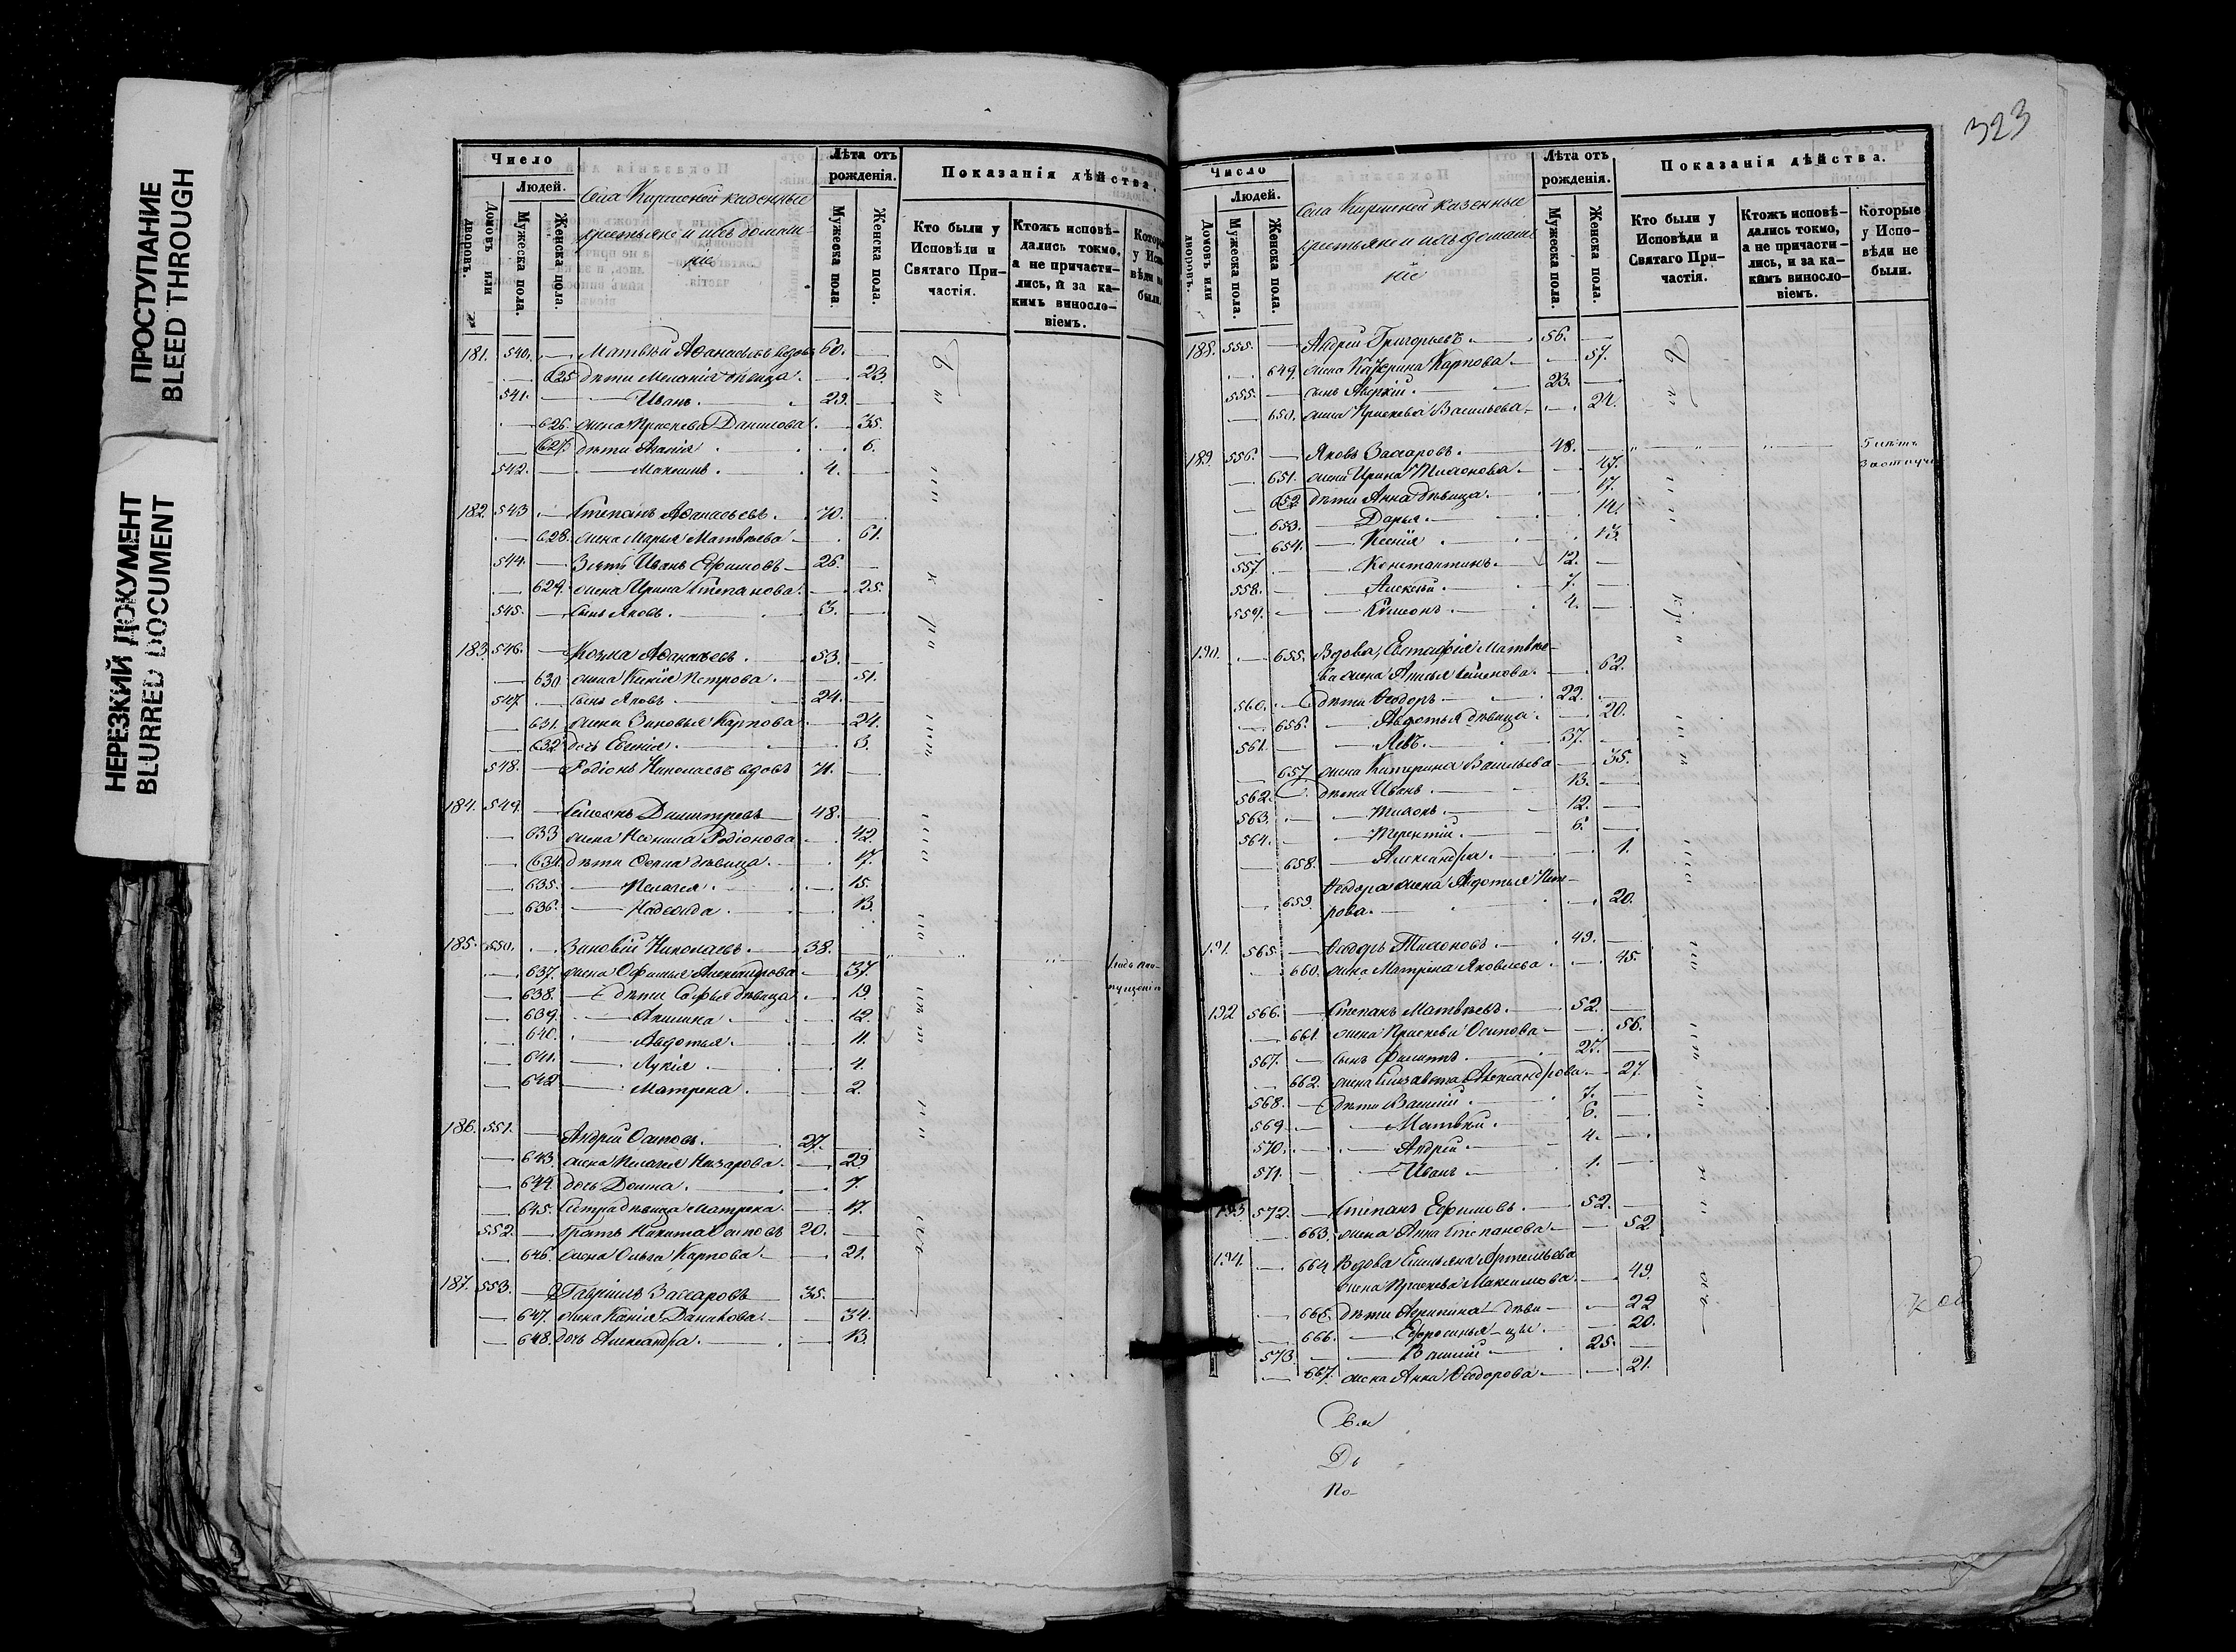 ПРОСТУПАНИЕ
BLEED THROUGH
НЕРЕЗКИЙ ДОКУМЕНТ
BLURRED DOCUMENT
Число
Людей.
Домовъ или дворовъ.
Мужеска пола.
Женска пола.
Села казенные
крестьяне и ихъ домаш-
ніе
Лѣта отъ рожденія.
Мужеска пола.
Женска пола.
Показанія дѣйства.
Кто были у Исповѣди и Святаго При-частія.
Ктожъ исповѣ-дались токмо, а не причасти-лись, и за ка-кимъ винословіемъ.
Которые у Испо-вѣди не были.
181. 540. Матвѣй Аѳанасьевъ вдовъ 60.
625 дѣти Меланія дѣвица. 23.
541. Иванъ. 29.
626. жена Прасковья Данилова. 35.
627. дѣти 6.
542. Максимъ. 4.
182. 543 Степанъ Аѳанасьевъ. 70.
628. жена Марья Матвѣева 61.
544. Зять Иванъ Ефимовъ 26.
629. жена Ирина Степанова. 25.
545. сынъ Яковъ. 3.
183. 546. Козма Аѳанасьевъ. 53.
630 жена Ксенія Петрова. 51.
547. сынъ Яковъ. 24.
631. жена Зиновья Карпова 24.
632 дочь Евгенія. 3.
548. Родіонъ Николаевъ вдовъ 71.
184. 549. Семенъ Димитревъ 48.
633 жена Родіонова 42.
634. дѣти дѣвица. 17.
635. Пелагея. 15.
636. Надежда. 13.
185. 550. Зиновій Николаевъ. 38.
637. жена Офимья Александрова 37.
638. дѣти Софья дѣвица 19.
639. Акилина 12.
640. Авдотья. 11.
641. Лукія 4.
642 Матрена. 2.
186. 551. Андрей Осиповъ. 27.
643. жена Пелагея Назарова. 29
644 дочь Домна. 7.
645. Сестра дѣвица Матрена. 17.
552. Братъ Никита Осиповъ 20.
646. жена Ольга Карпова. 21.
187. 553. Гавріилъ Захаровъ 35.
647. жена Ксенія Данилова. 34.
648. дочь Александра. 13.
323
Число
Людей.
Домовъ или дворовъ.
Мужеска пола.
Женска пола.
Села казенные
крестьяне и ихъ домаш-
ніе
Лѣта отъ рожденія.
Мужеска пола.
Женска пола.
Показанія дѣйства.
Кто были у Исповѣди и Святаго При-частія.
Ктожъ исповѣ-дались токмо, а не причасти-лись, и за ка-кимъ винословіемъ.
Которые у Испо-вѣди не были.
188. 555. Андрей Григорьевъ. 56.
649. жена Катерина Карпова 57.
555. сынъ Авдкій. 23.
650. жена Прасковья Васильева 24.
189. 556. Яковъ Захаровъ. 48. 5 лѣтъ
651. жена Ирина Тихонова. 47.
652 дѣти Анна дѣвица. 17.
653. Дарья. 14.
654. Ксенія 13.
557. Константинъ. 12.
558. Алексѣй. 7.
559. Симонъ. 4.
190. 655. Вдова Матвѣе-
ва жена Анисья Семенова. 62.
560. дѣти Ѳеодоръ 22.
656. Авдотья дѣвица. 20.
561. Левъ. 37.
657. жена Катерина Васильева 35.
562. дѣти Иванъ. 13.
563. Тихонъ. 12.
564. Терентій. 6.
658. Александра. 1.
659. Ѳеодора жена Авдотья Пет-
рова. 20.
191. 565. Ѳеодоръ Тихоновъ. 49.
660. жена Матрена Яковлева 45.
192 566. Степанъ Матвѣевъ. 52.
661. жена Прасковья Осипова 56.
567. сынъ Филиппъ. 27.
662. жена Елизавета Александрова 27.
568. дѣти Василій. 7.
569. Матвѣй. 6.
570. Андрей. 4.
571. Иванъ. 1.
193. 572. Степанъ Ефимовъ. 52.
663. жена Анна Степанова 52.
194. 664 Вдова Емельяна Артемьева
жена Прасковья Максимова. 49.
665. дѣти Агрипина дѣви- 22
666. Ефросинья цы. 20.
573. Василій 25.
667. жена Анна Ѳеодорова 21.
Свя
Ди
По-